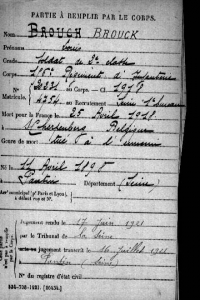 PARTIE À REMPLIR PAR LE CORPS.
Nom BROUCH BROUCK
Prénoms Louis
Grade Soldat de 2e classe
Corps Régiment d'Infanterie
N° au Corps. — Cl 1917
Matricule. 4254 au Recrutement Seine
Mort pour la France le 25 Avril 1918
à Belgique
Genre de mort tué à l'ennemi
Né le Avril 1898
à Pantin Département (Seine)
Arrt municipal (pr Paris et Lyon),
à défaut rue et N°.
Jugement rendu le 17 juin 1921
par le Tribunal de la Seine
jugement transcrit le 16 juillet 1921
Pantin Seine
N° du registre d'état civil
534-708-1921. [26434.]